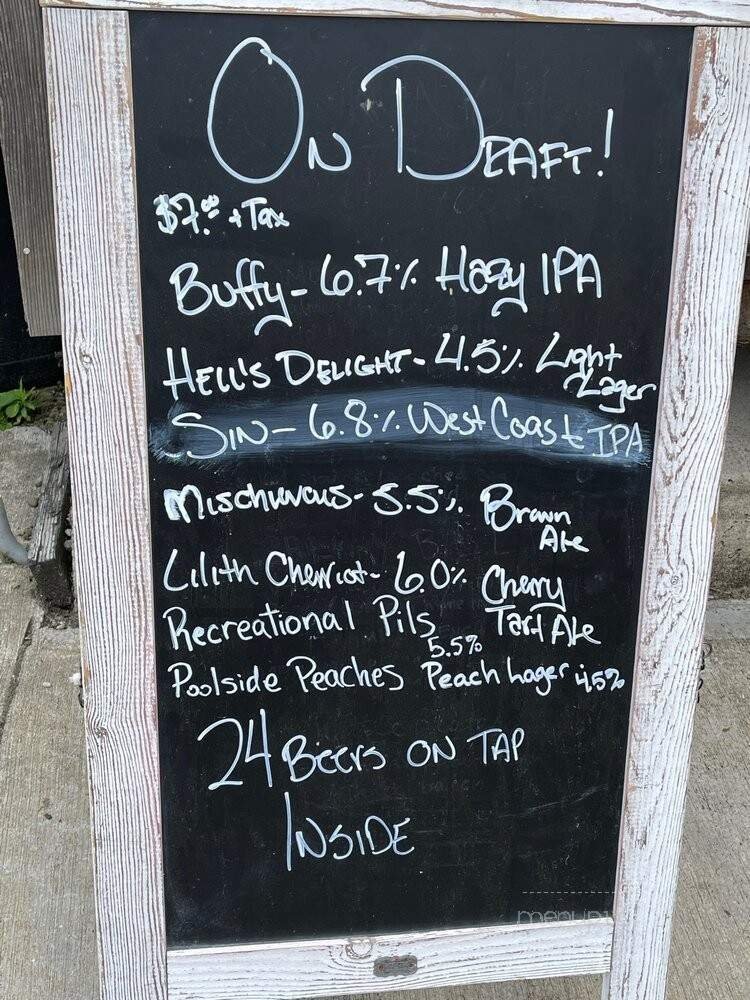 On Draft!
$7.00 + Tax
Buffy - 6.7% Hazy IPA
Hell's Delight - 4.5% Light
Lager
Sin - 6.8% West Coast IPA
Mischievous - 5.5% Brown
Ale
Lilith Cherriot - 6.0% Cherry
Tart Ale
Recreational Pils
5.5%
Poolside Peaches Peach Lager 4.5%
24 Beers on Tap
Inside